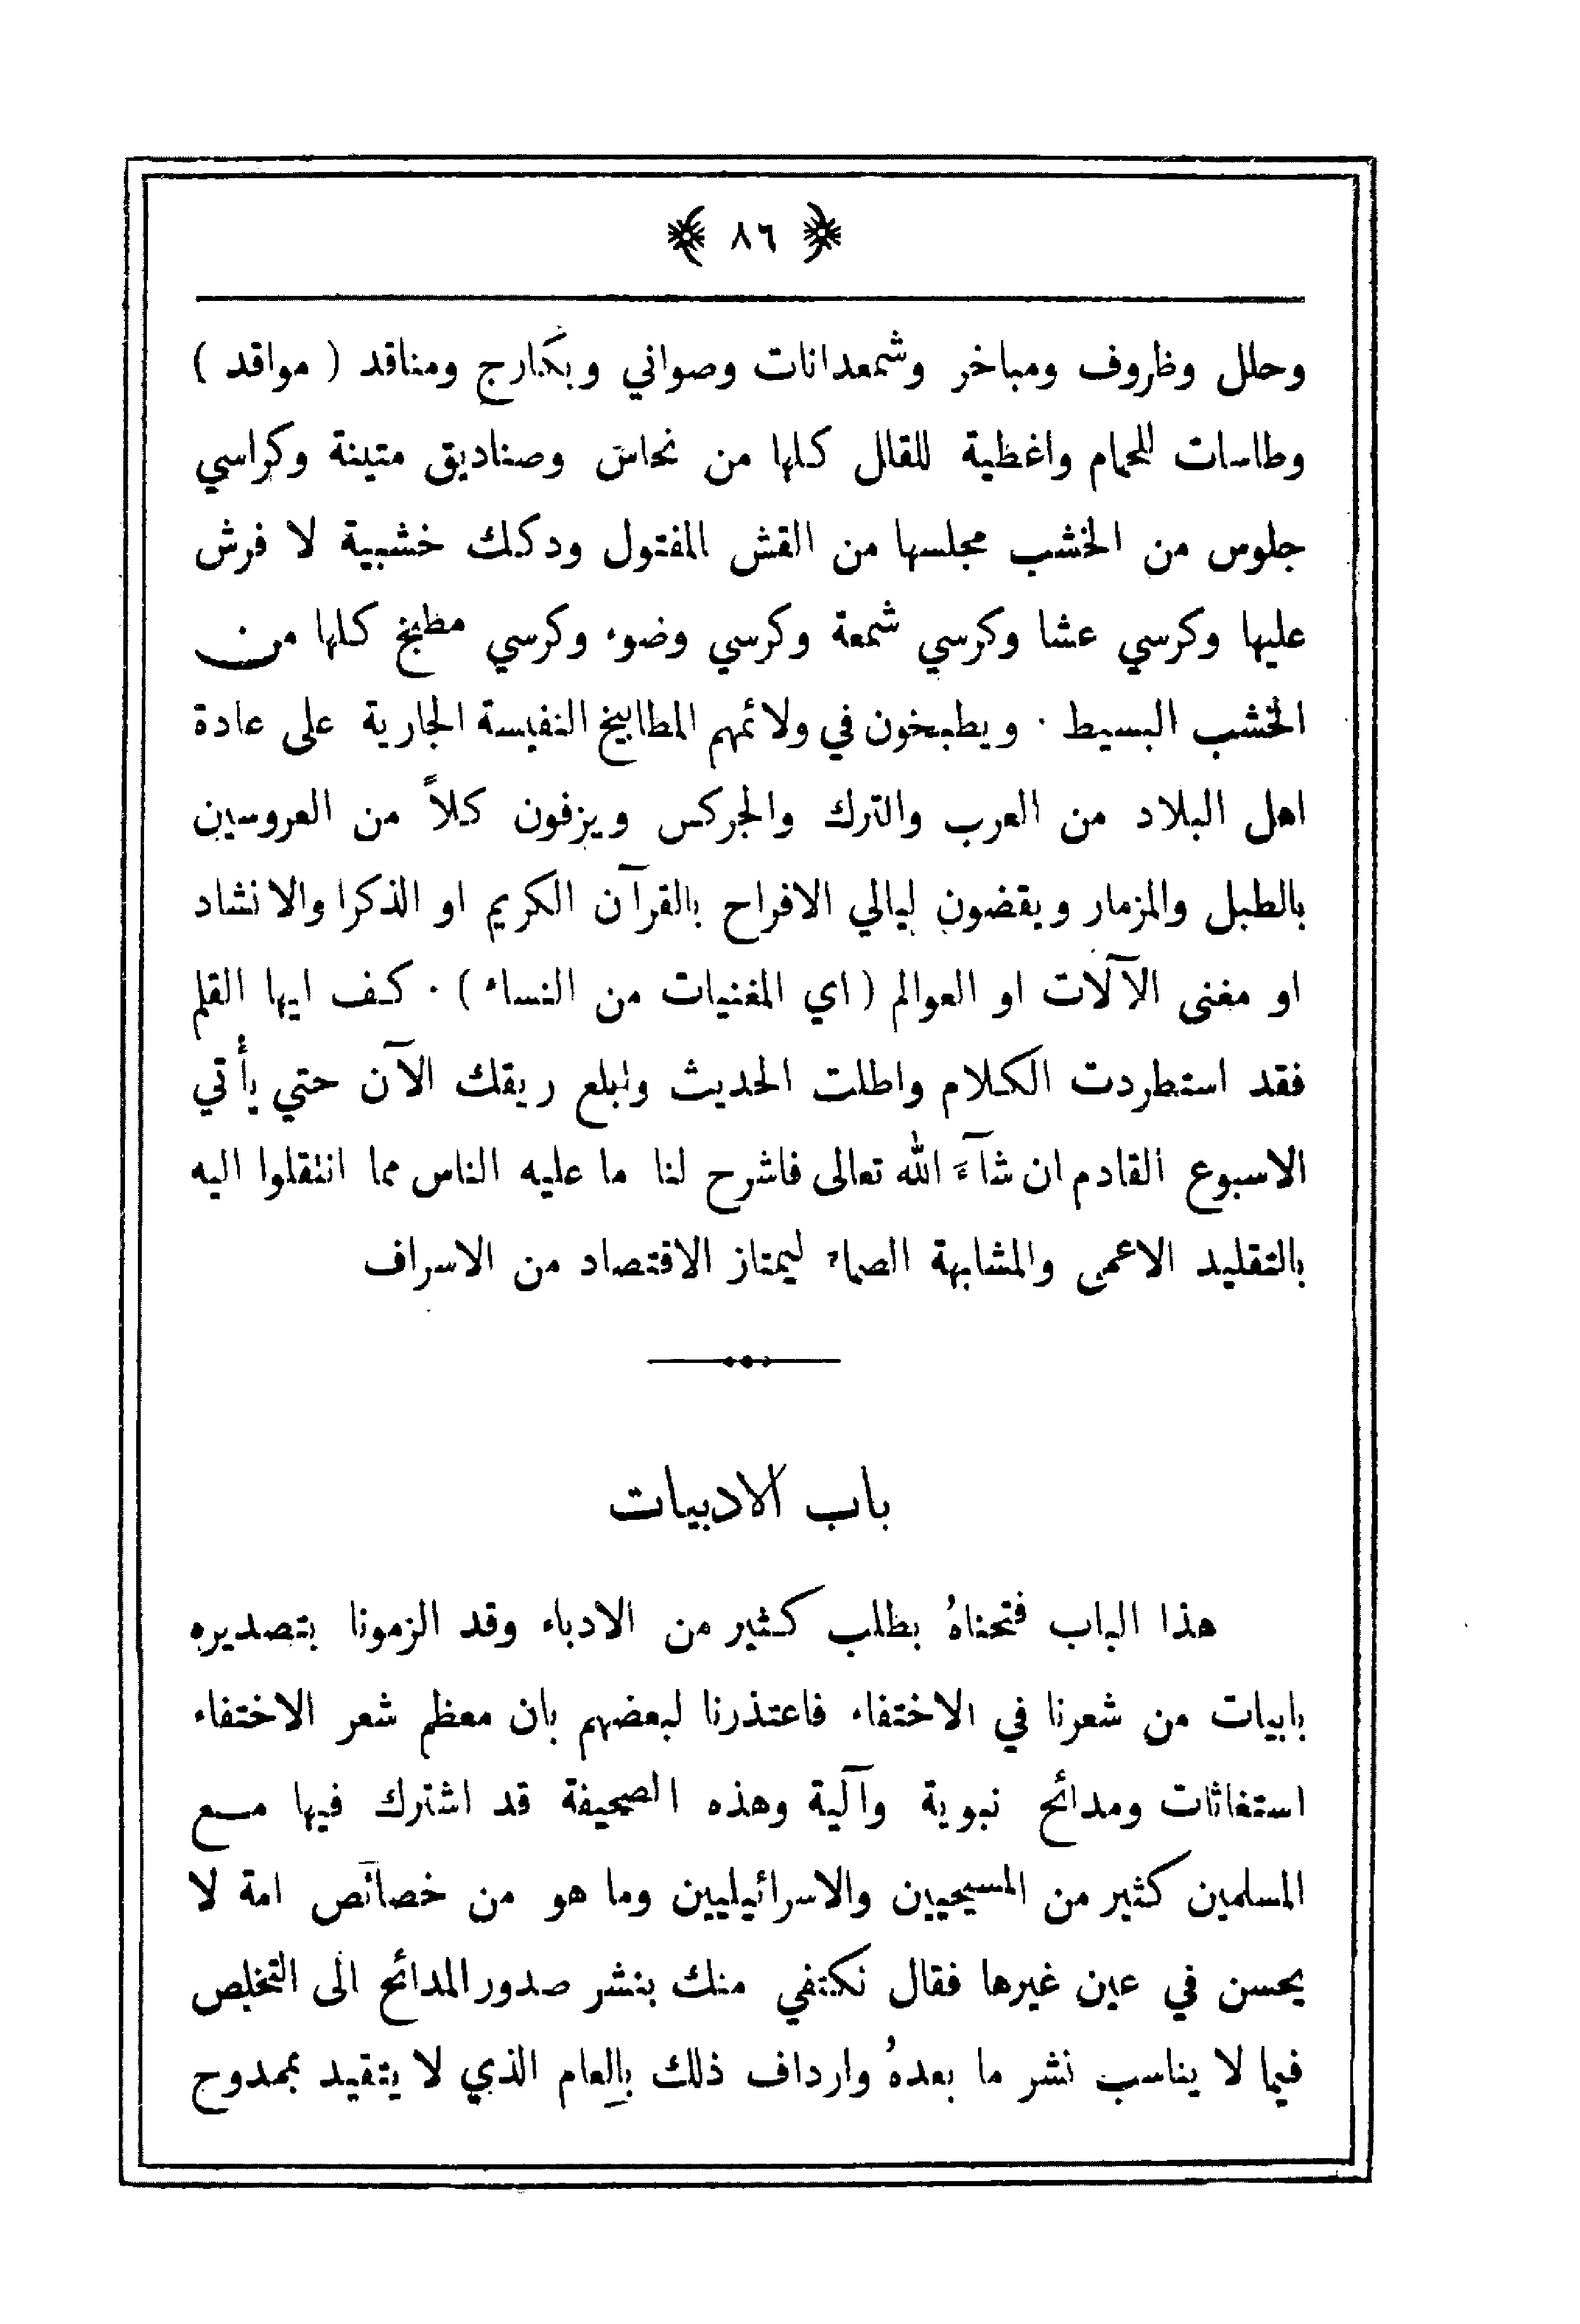 ٨٦
وحلل وظروف ومباخر وشمعدانات وصواني وبكارج ومناقد ( مواقد )
وطاسات للحمام واغطية للقلل كلها من نحاس وصناديق متينة وكراسي
جلوس من الخشب مجلسها من القش المفتول ودكك خشبية لا فرش
عليها وكرسي عشا وكرسي شمعة وكرسي وضوء وكرسي مطبخ كلها من
الخشب البسيط · ويطبخون في ولائمهم المطابيخ النفيسة الجارية على عادة
اهل البلاد من العرب والترك والجركس ويزفون كلاً من العروسين
بالطبل والمزمار ويقضون ليالي الافراح بالقرآن الكريم او الذكرا والانشاد
او مغنى الآلات او العوالم ( اي المغنيات من النساء ) · كف ايها القلم
فقد استطردت الكلام واطلت الحديث وابلع ريقك الآن حتي يأتي
الاسبوع القادم ان شآء الله تعالى فاشرح لنا ما عليه الناس مما انتقلوا اليه
بالتقليد الاعمى والمشابهة الصماء ليمتاز الاقتصاد من الاسراف
باب الادبيات
هذا الباب فتحناهُ بطلب كثير من الادباء وقد الزمونا بتصديره
بابيات من شعرنا في الاختفاء فاعتذرنا لبعضهم بان معظم شعر الاختفاء
استغاثات ومدائح نبوية وآلية وهذه الصحيفة قد اشترك فيها مع
المسلمين كثير من المسيحيين والاسرائيليين وما هو من خصائص امة لا
يحسن في عين غيرها فقال نكتفي منك بنشر صدور المدائح الى التخلص
فيما لا يناسب نشر ما بعدهُ وارداف ذلك بالعام الذي لا يتقيد بممدوح